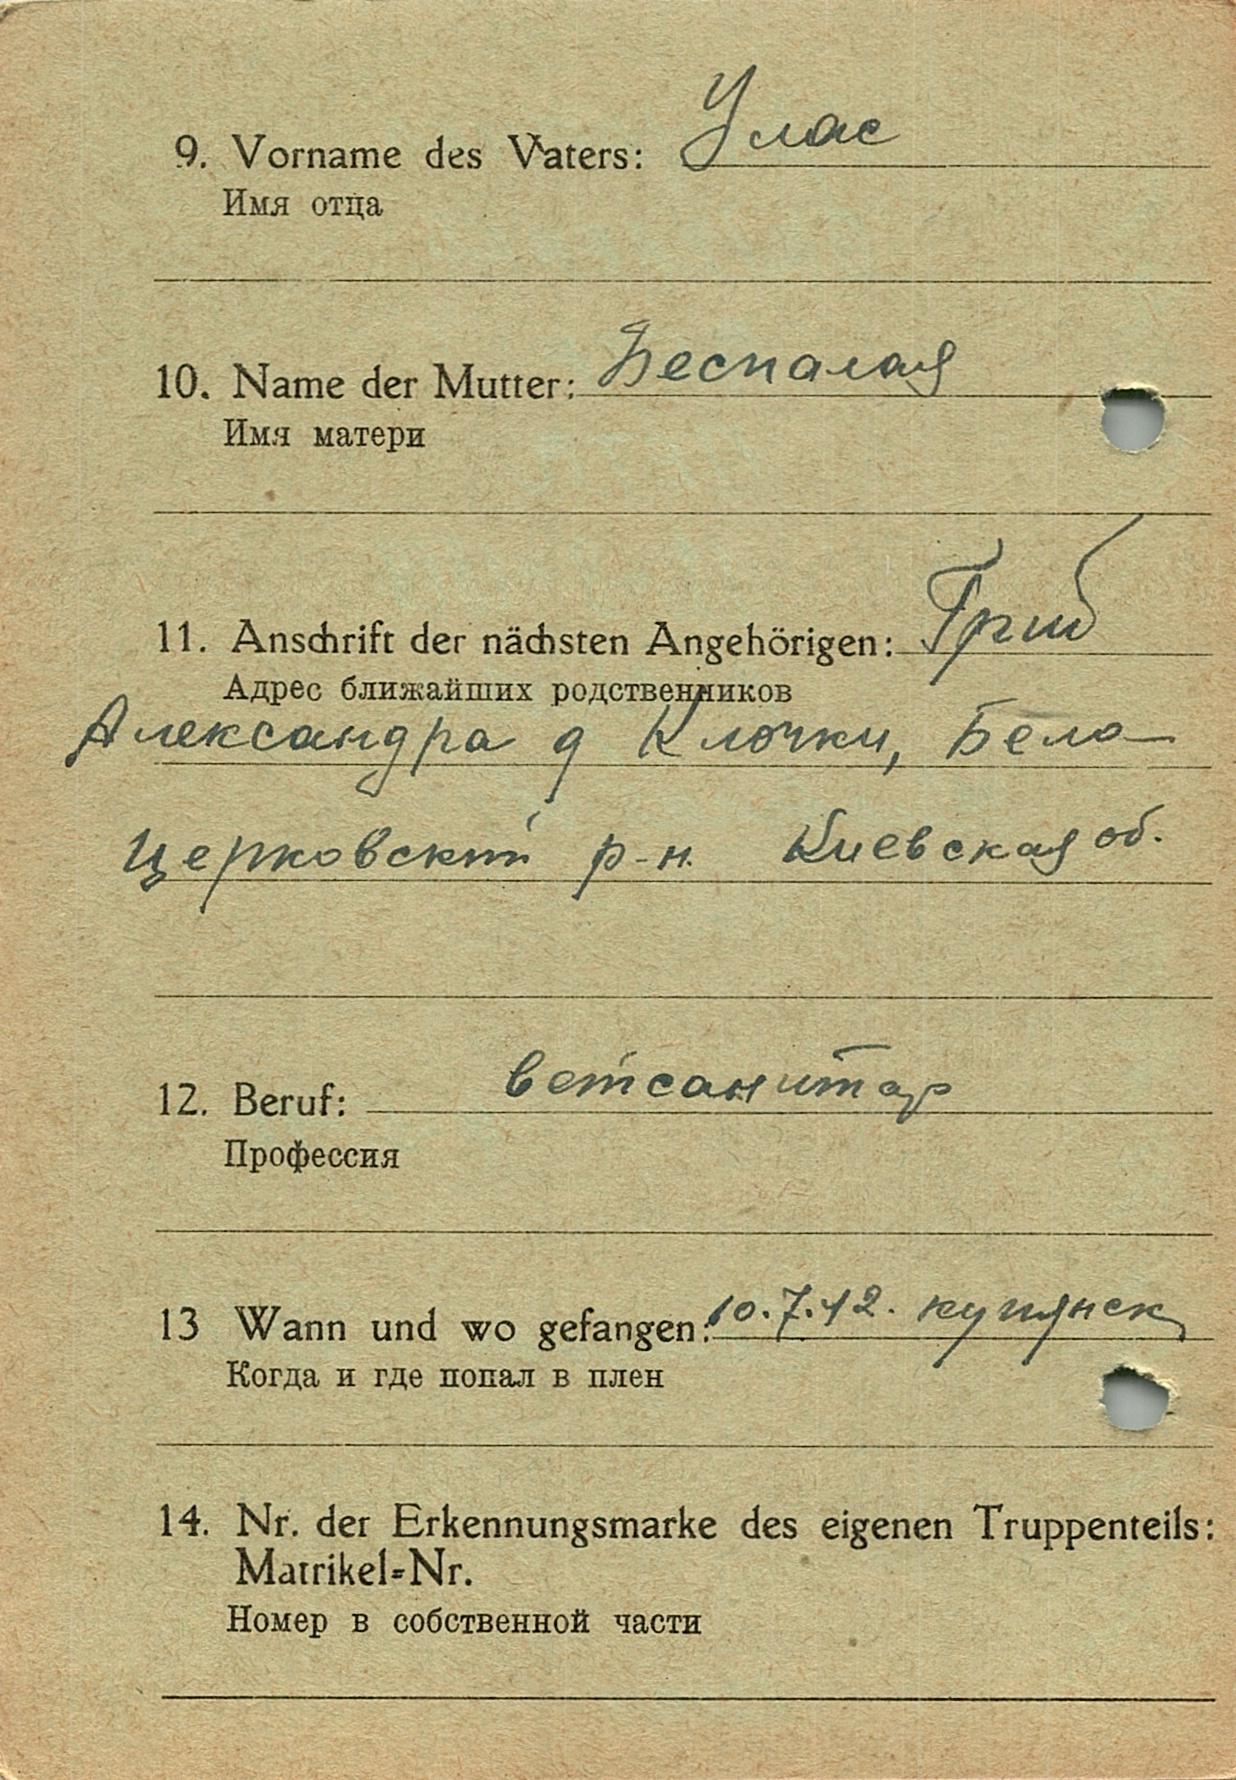 9. Vorname des Vaters: Улас
Имя отца
10. Name der Mutter: Беспалая
Имя матери
11. Anschrift der nächsten Angehörigen: Гриб
Адрес ближайших родственников
Александра д Клочки, Бело-
церковский р-н. Киевская об.
12. Beruf: ветсанитар
Профессия
13 Wann und wo gefangen: 10.7.42. купянск
Когда и где попал в плен
14. Nr. der Erkennungsmarke des eigenen Truppenteils:
Matrikel-Nr.
Номер в собственной части